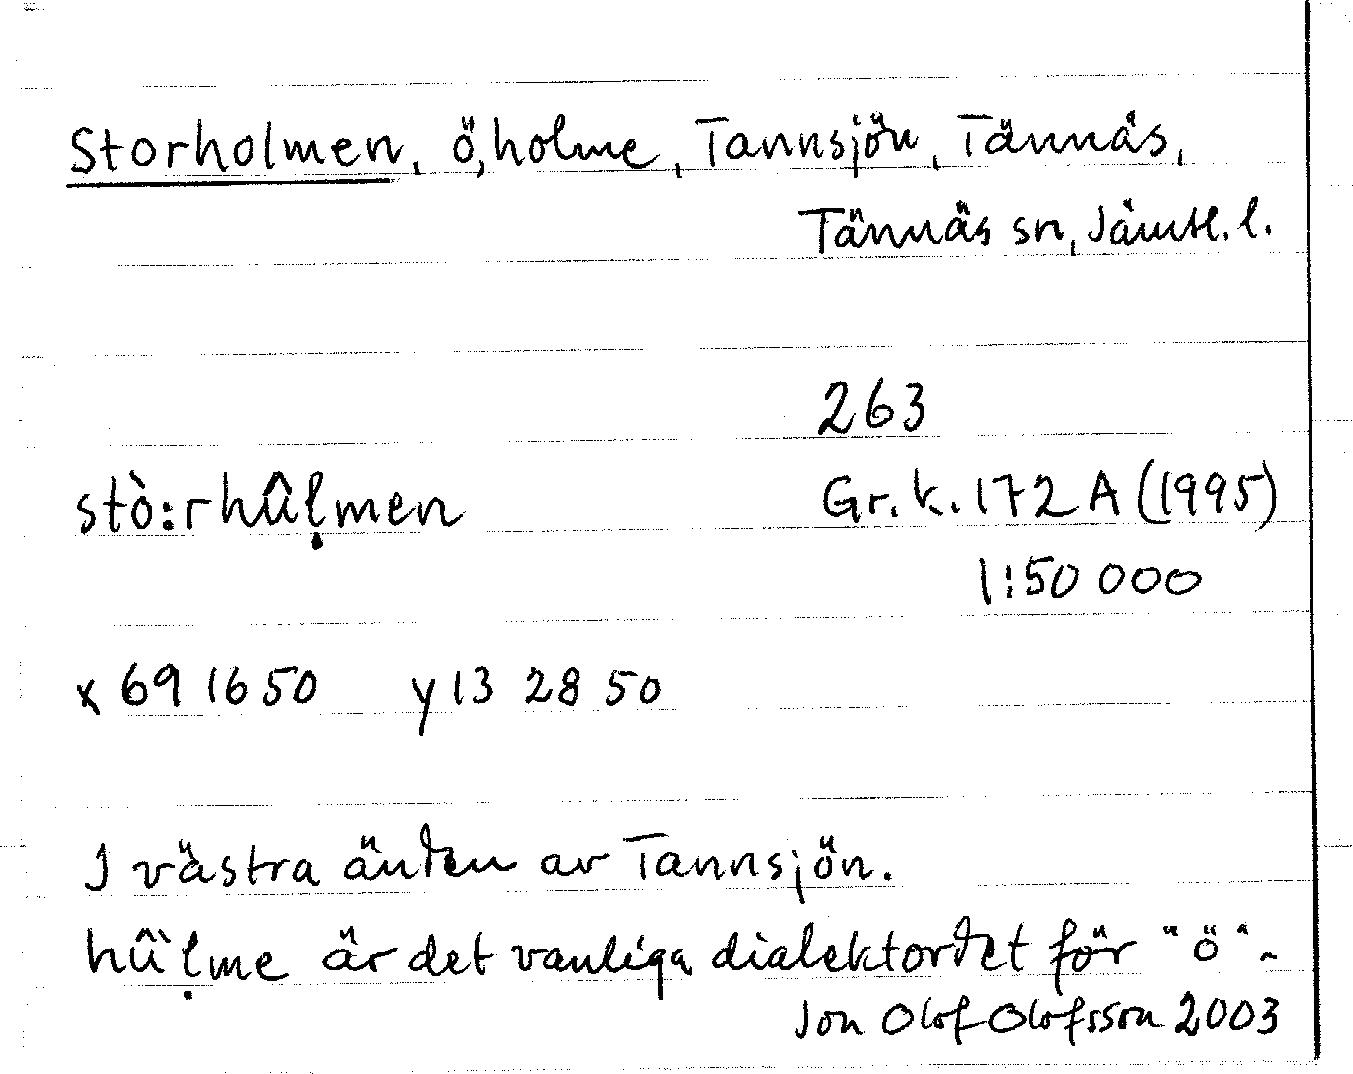 Storholmen, ö, holme, Tannsjön, Tännäs,
Tännäs sn, Jämtl. l.
263
stò:rhûḷmen Gr. k. 172 A (1995)
1:50 000
x 69 16 50 y 13 28 50
I västra änden av Tannsjön.
hû̀ḷme är det vanliga dialektordet för "ö".
Jon Olof Olofsson 2003